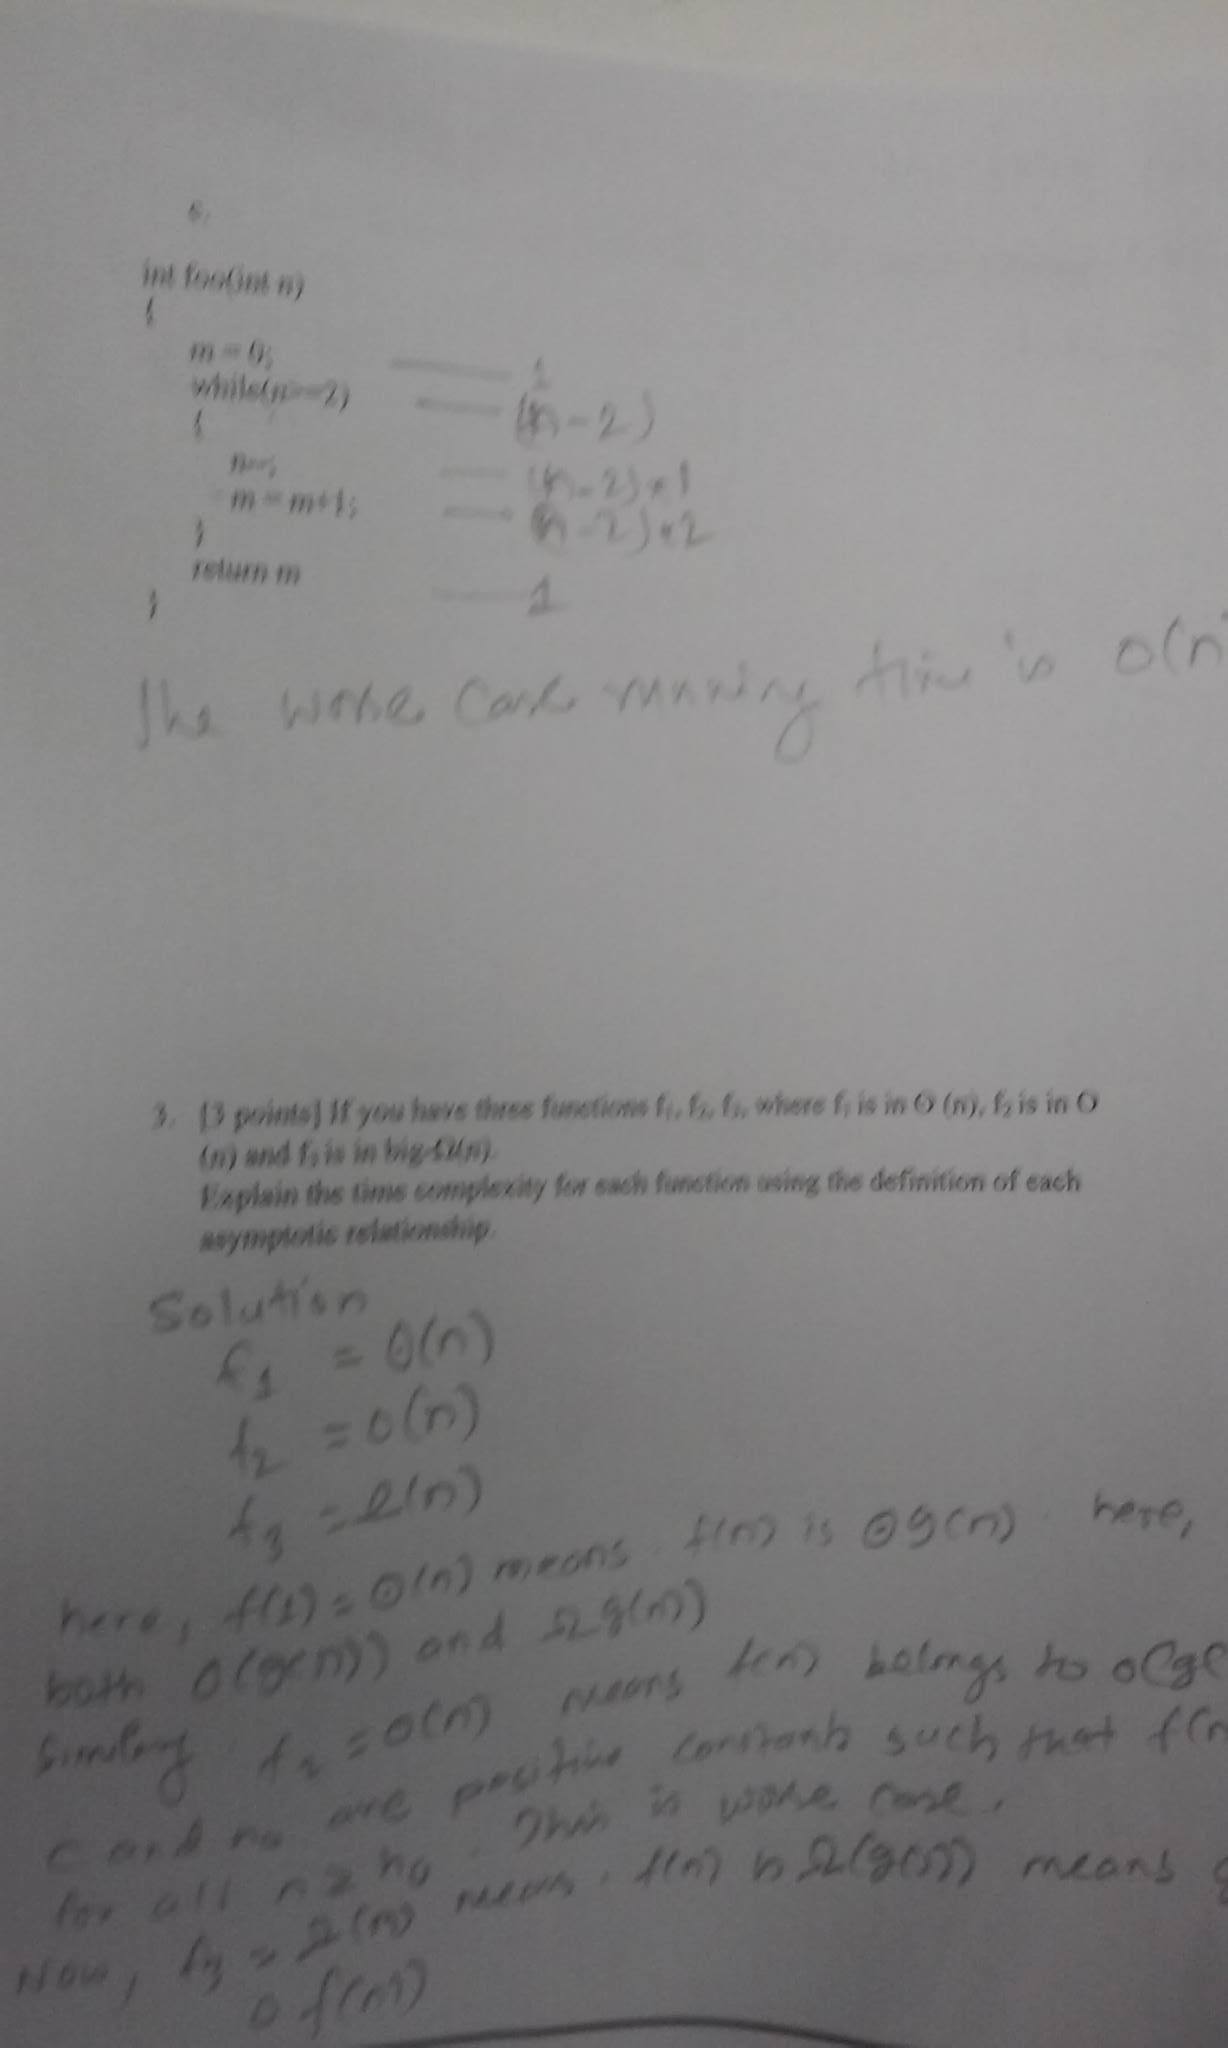 int foo(int n)
{
m = 0; 1
while(n>=2) (n-2)
{
n--; (n-2)*1
m = m+1; (n-2)*2
}
return m 1
}
The worse case running time is O(n
3. [3 points] If you have three functions f₁, f₂, f₃, where f₁ is in Θ (n), f₂ is in O
(n) and f₃ is in big-Ω(n).
Explain the time complexity for each function using the definition of each
asymptotic relationship.
Solution
f₁ = Θ(n)
f₂ = O(n)
f₃ = Ω(n)
here, f(1) = Θ(n) means f(n) is Θg(n) here,
both O(g(n)) and Ωg(n))
f₂ = O(n) means f(n) belongs to O(g(
c and n₀ are positive constants such that f(n
for all n ≥ n₀. This is worse case.
Now, f₃ = Ω(n) means f(n) is Ω(g(n)) means g
O f(n))